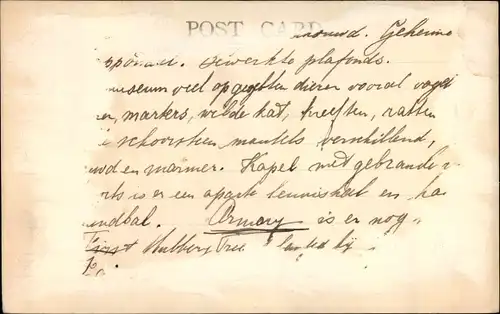 POST CARD
Geheime
bewerkte plafonds.
useum veel opgezette dieren vooral vogel
markers, wilde kat, kreeften, ratten
schoorsteen mantels verschillend,
en marmer. Kapel met gebrande
is er een aparte tennishal en
andbal. Armory is er nog
First Mulberry Tree planted by